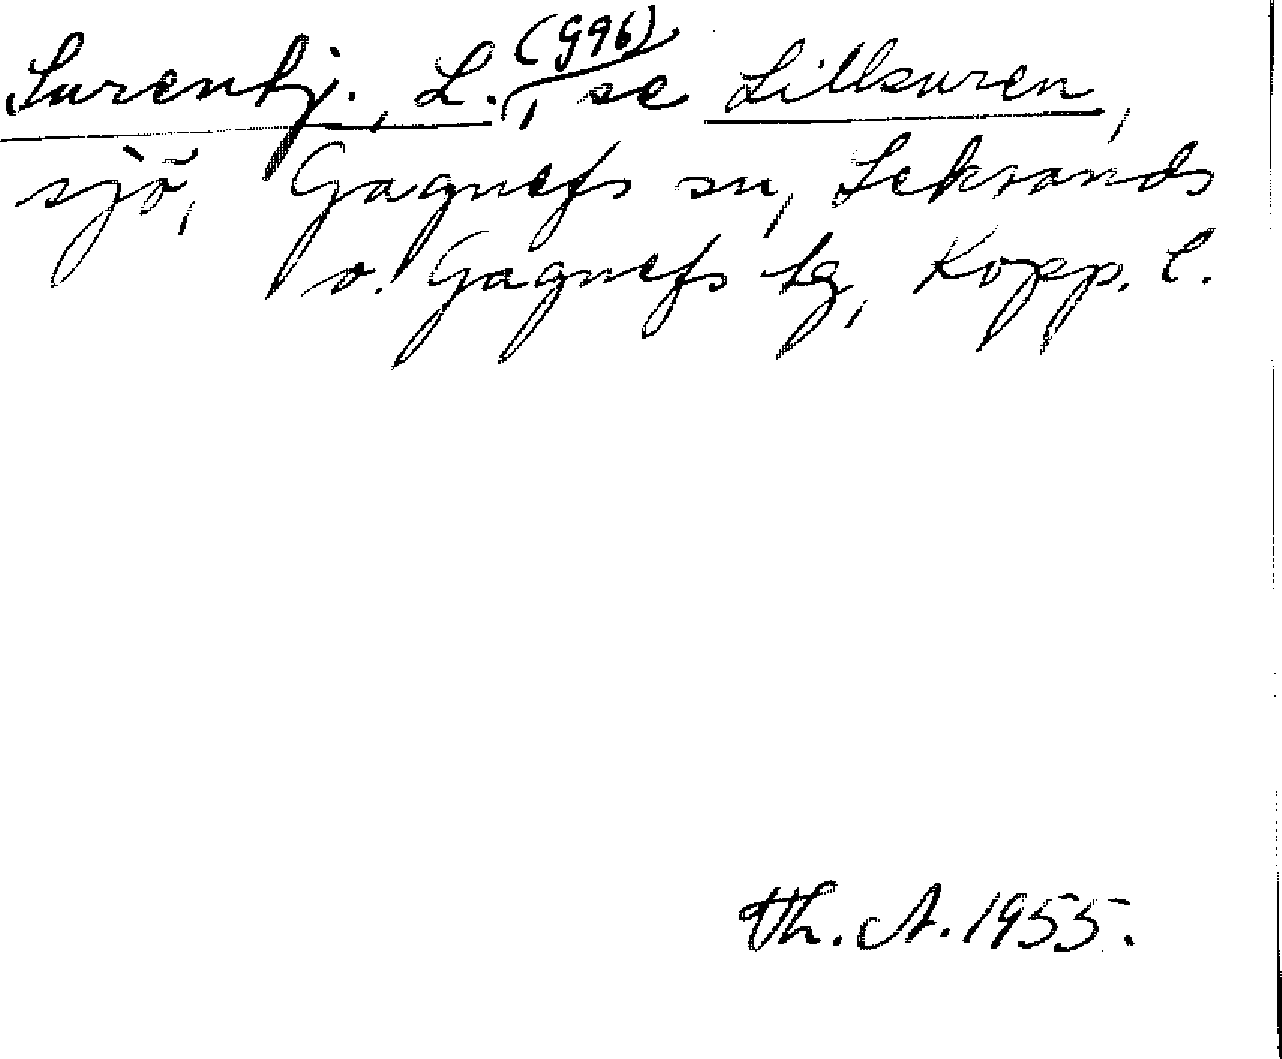 Surentj., L. (G96), se Lillsuren,
sjö, Gagnefs sn, Leksands
o. Gagnefs tg, Kopp. l.
Th. A. 1955.